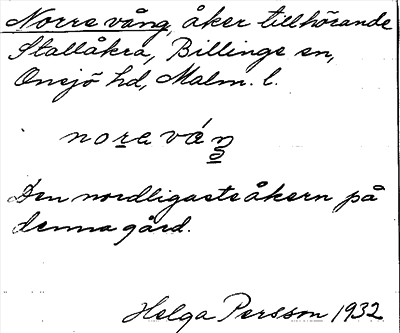 Norre vång, åker tillhörande
Stallåkra, Billinge sn,
Onsjö hd, Malm. l.
nore våŋ
Den nordligaste åkern på
denna gård.
Helga Persson 1932